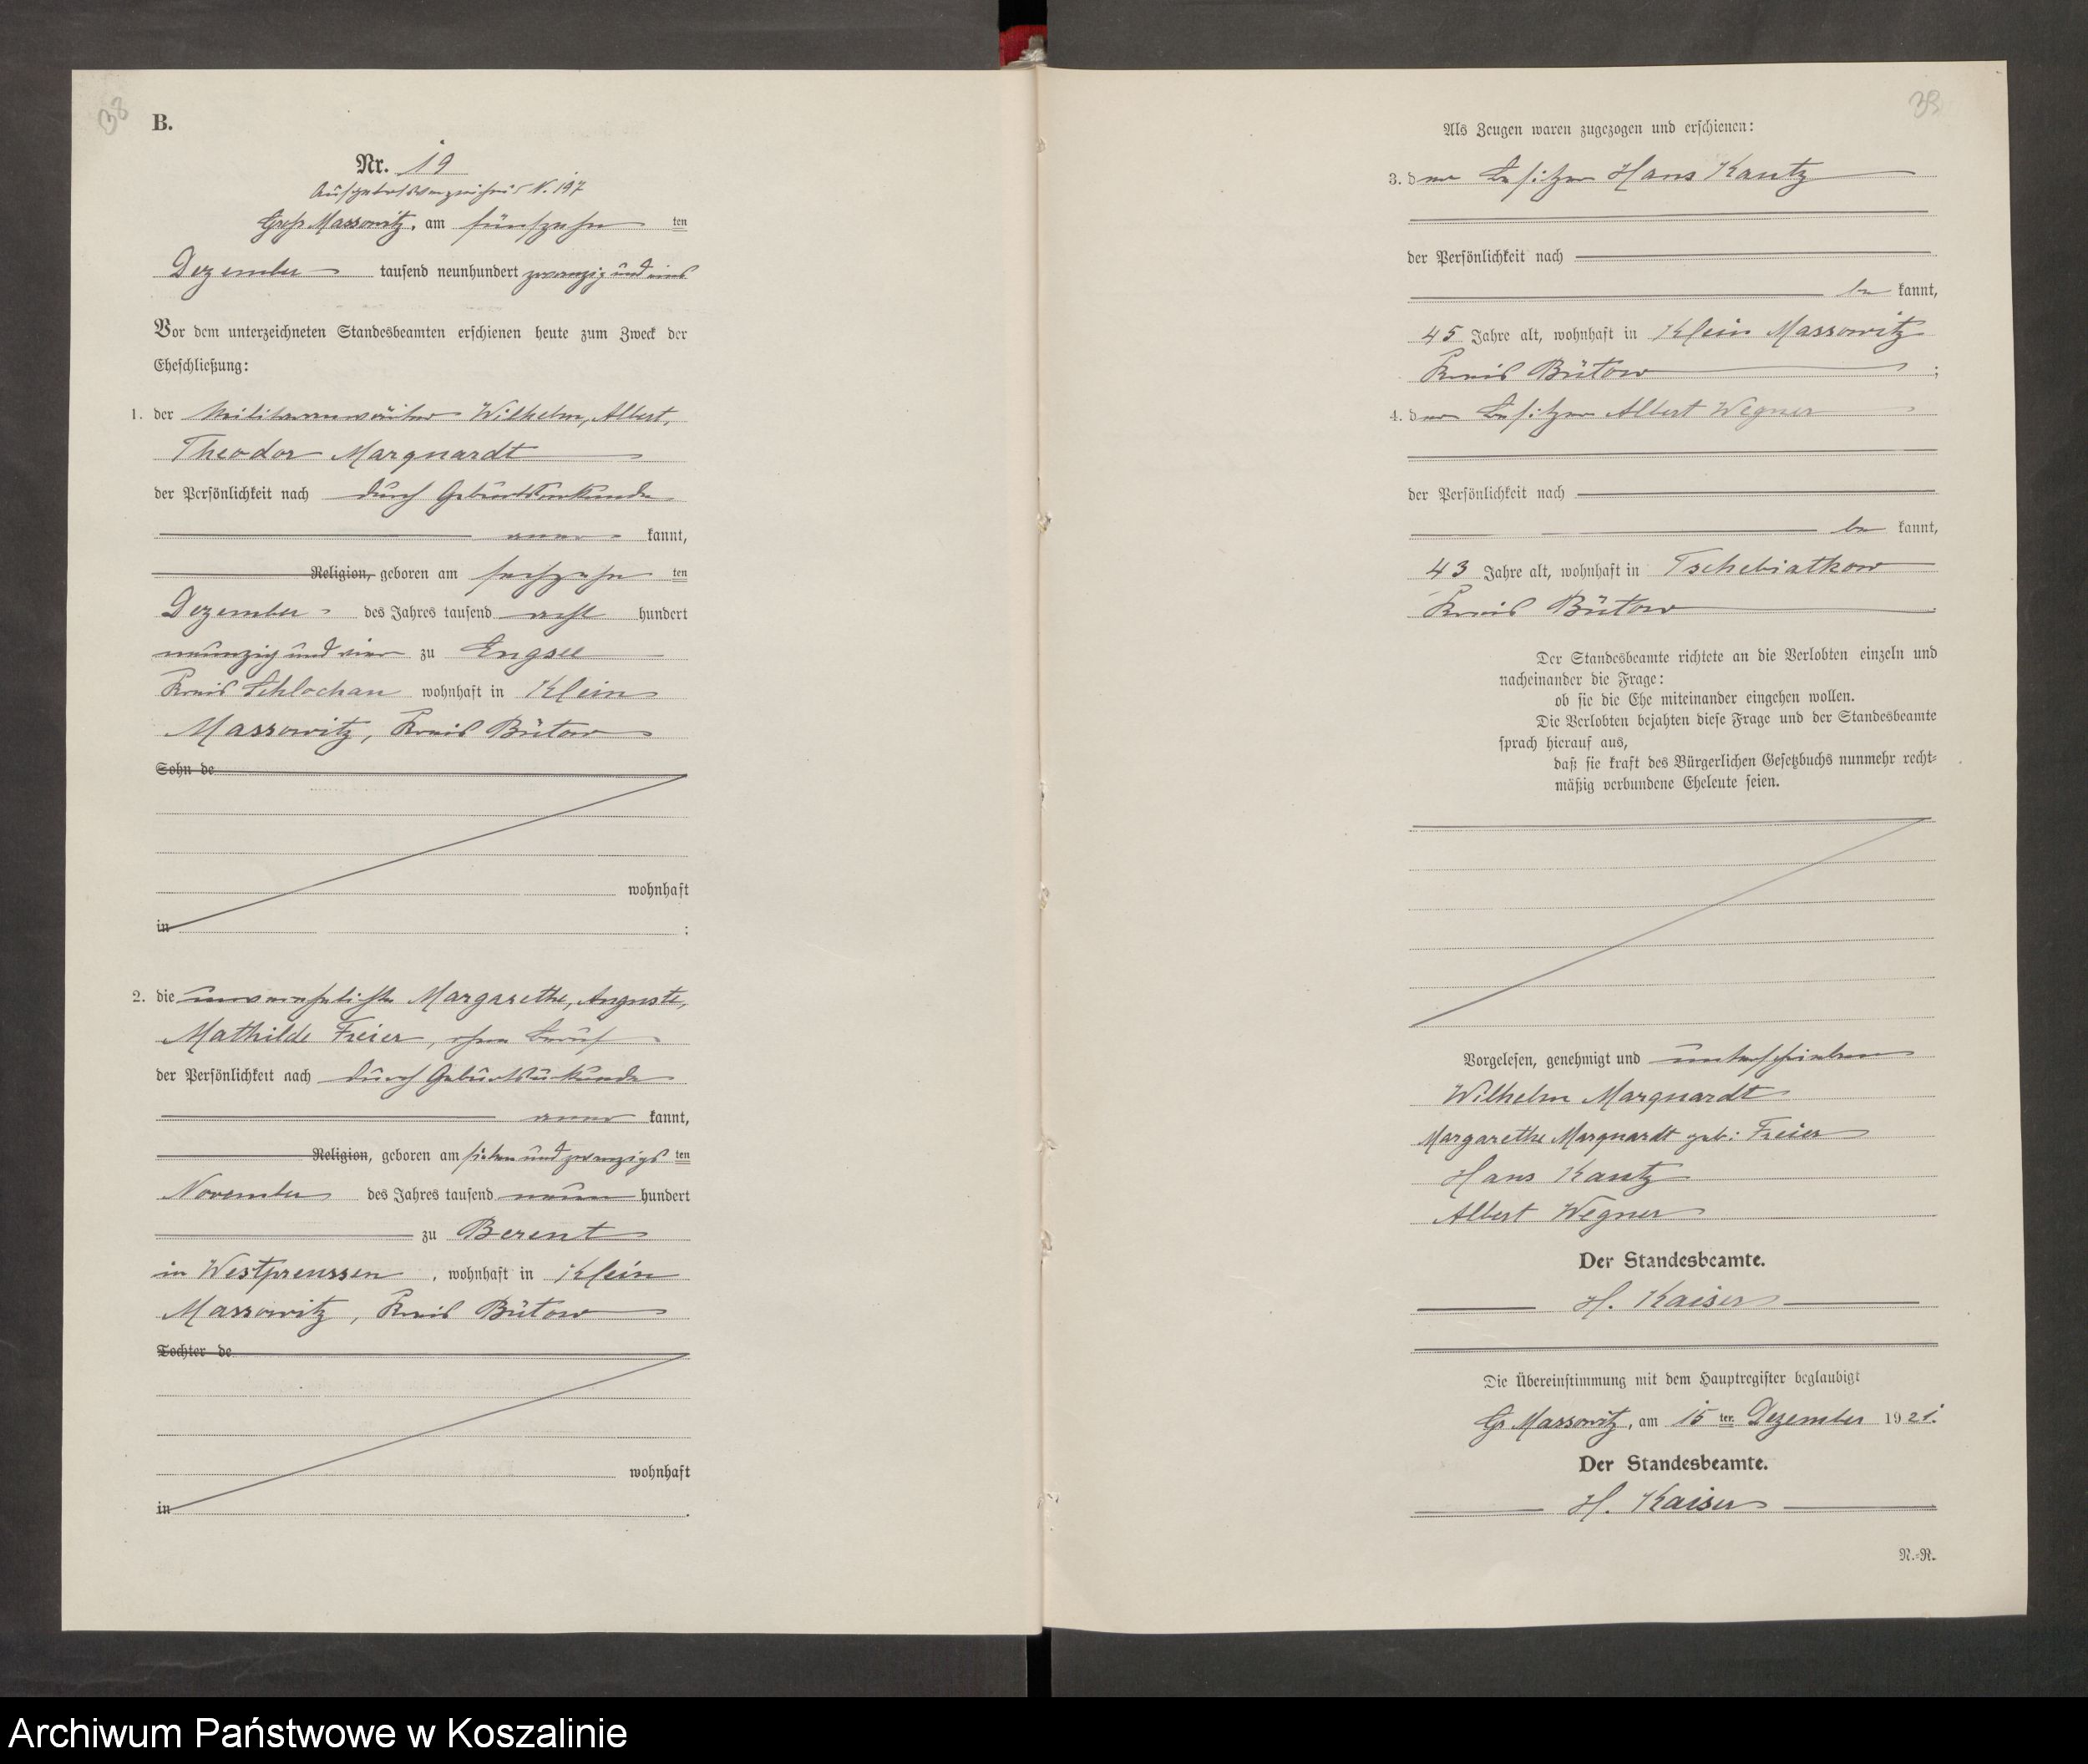 38
B.
Nr. 19
Aufgebotsverzeichnis N. 197
Groß Massowitz, am fünfzehn ten
Dezember tausend neunhundert zwanzig und eins
Vor dem unterzeichneten Standesbeamten erschienen heute zum Zweck der
Eheschließung:
1. der Militäranwärter Wilhelm, Albert,
Theodor Marquardt
der Persönlichkeit nach durch Geburtsurkunde
aner kannt,
Religion, geboren am sechzehn ten
Dezember des Jahres tausend acht hundert
neunzig und vier zu Engsee
Kreis Schlochau wohnhaft in Klein
Massowitz, Kreis Bütow
Sohn de
wohnhaft
in ;
2. die unverehelichte Margarethe, Auguste,
Mathilde Freier, ohne Beruf
der Persönlichkeit nach durch Geburtsurkunde
aner kannt,
Religion, geboren am sieben und zwanzigs ten
November des Jahres tausend neun hundert
zu Berent
in Westpreussen, wohnhaft in Klein
Massowitz, Kreis Bütow
Tochter de
wohnhaft
in .
39
Als Zeugen waren zugezogen und erschienen:
3. der Besitzer Hans Kautz
der Persönlichkeit nach
be kannt,
45 Jahre alt, wohnhaft in Klein Massowitz
Kreis Bütow ;
4. der Besitzer Albert Wegner
der Persönlichkeit nach
be kannt,
43 Jahre alt, wohnhaft in Tschebiatkow
Kreis Bütow .
Der Standesbeamte richtete an die Verlobten einzeln und
nacheinander die Frage:
ob sie die Ehe miteinander eingehen wollen.
Die Verlobten bejahten diese Frage und der Standesbeamte
sprach hierauf aus,
daß sie kraft des Bürgerlichen Gesetzbuchs nunmehr recht-
mäßig verbundene Eheleute seien.
Vorgelesen, genehmigt und unterschrieben
Wilhelm Marquardt
Margarethe Marquardt geb: Freier
Hans Kautz
Albert Wegner
Der Standesbeamte.
H. Kaiser
Die Übereinstimmung mit dem Hauptregister beglaubigt
Gr Massowitz, am 15 ten Dezember 1921.
Der Standesbeamte.
H. Kaiser
N.-R.
Archiwum Państwowe w Koszalinie